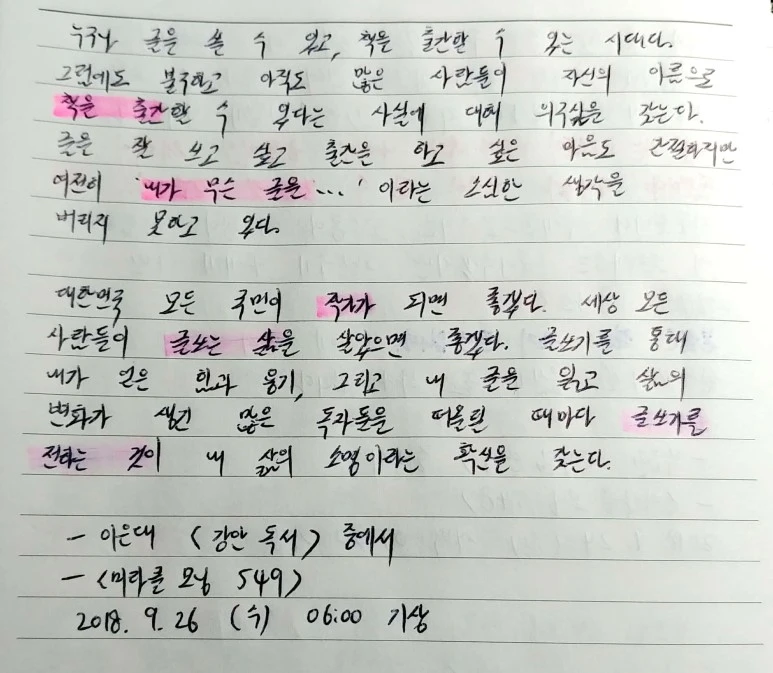 누구나 글을 쓸 수 있고, 책을 출간할 수 있는 시대다.
그럼에도 불구하고 아직도 많은 사람들이 자신의 이름으로
책을 출간할 수 있다는 사실에 대해 의구심을 갖는다.
글을 잘 쓰고 싶고 출간을 하고 싶은 마음도 간절하지만
여전히 '내가 무슨 글을...' 이라는 소심한 생각을
버리지 못하고 있다.
대한민국 모든 국민이 작가가 되면 좋겠다. 세상 모든
사람들이 글쓰는 삶을 살았으면 좋겠다. 글쓰기를 통해
내가 얻은 힘과 용기, 그리고 내 글을 읽고 삶의
변화가 생긴 많은 독자들을 떠올릴 때마다 글쓰기를
전하는 것이 내 삶의 소명이라는 확신을 갖는다.
- 이은대 <강안 독서> 중에서
- <미라클 모닝 549>
2018. 9. 26 (수) 06:00 기상